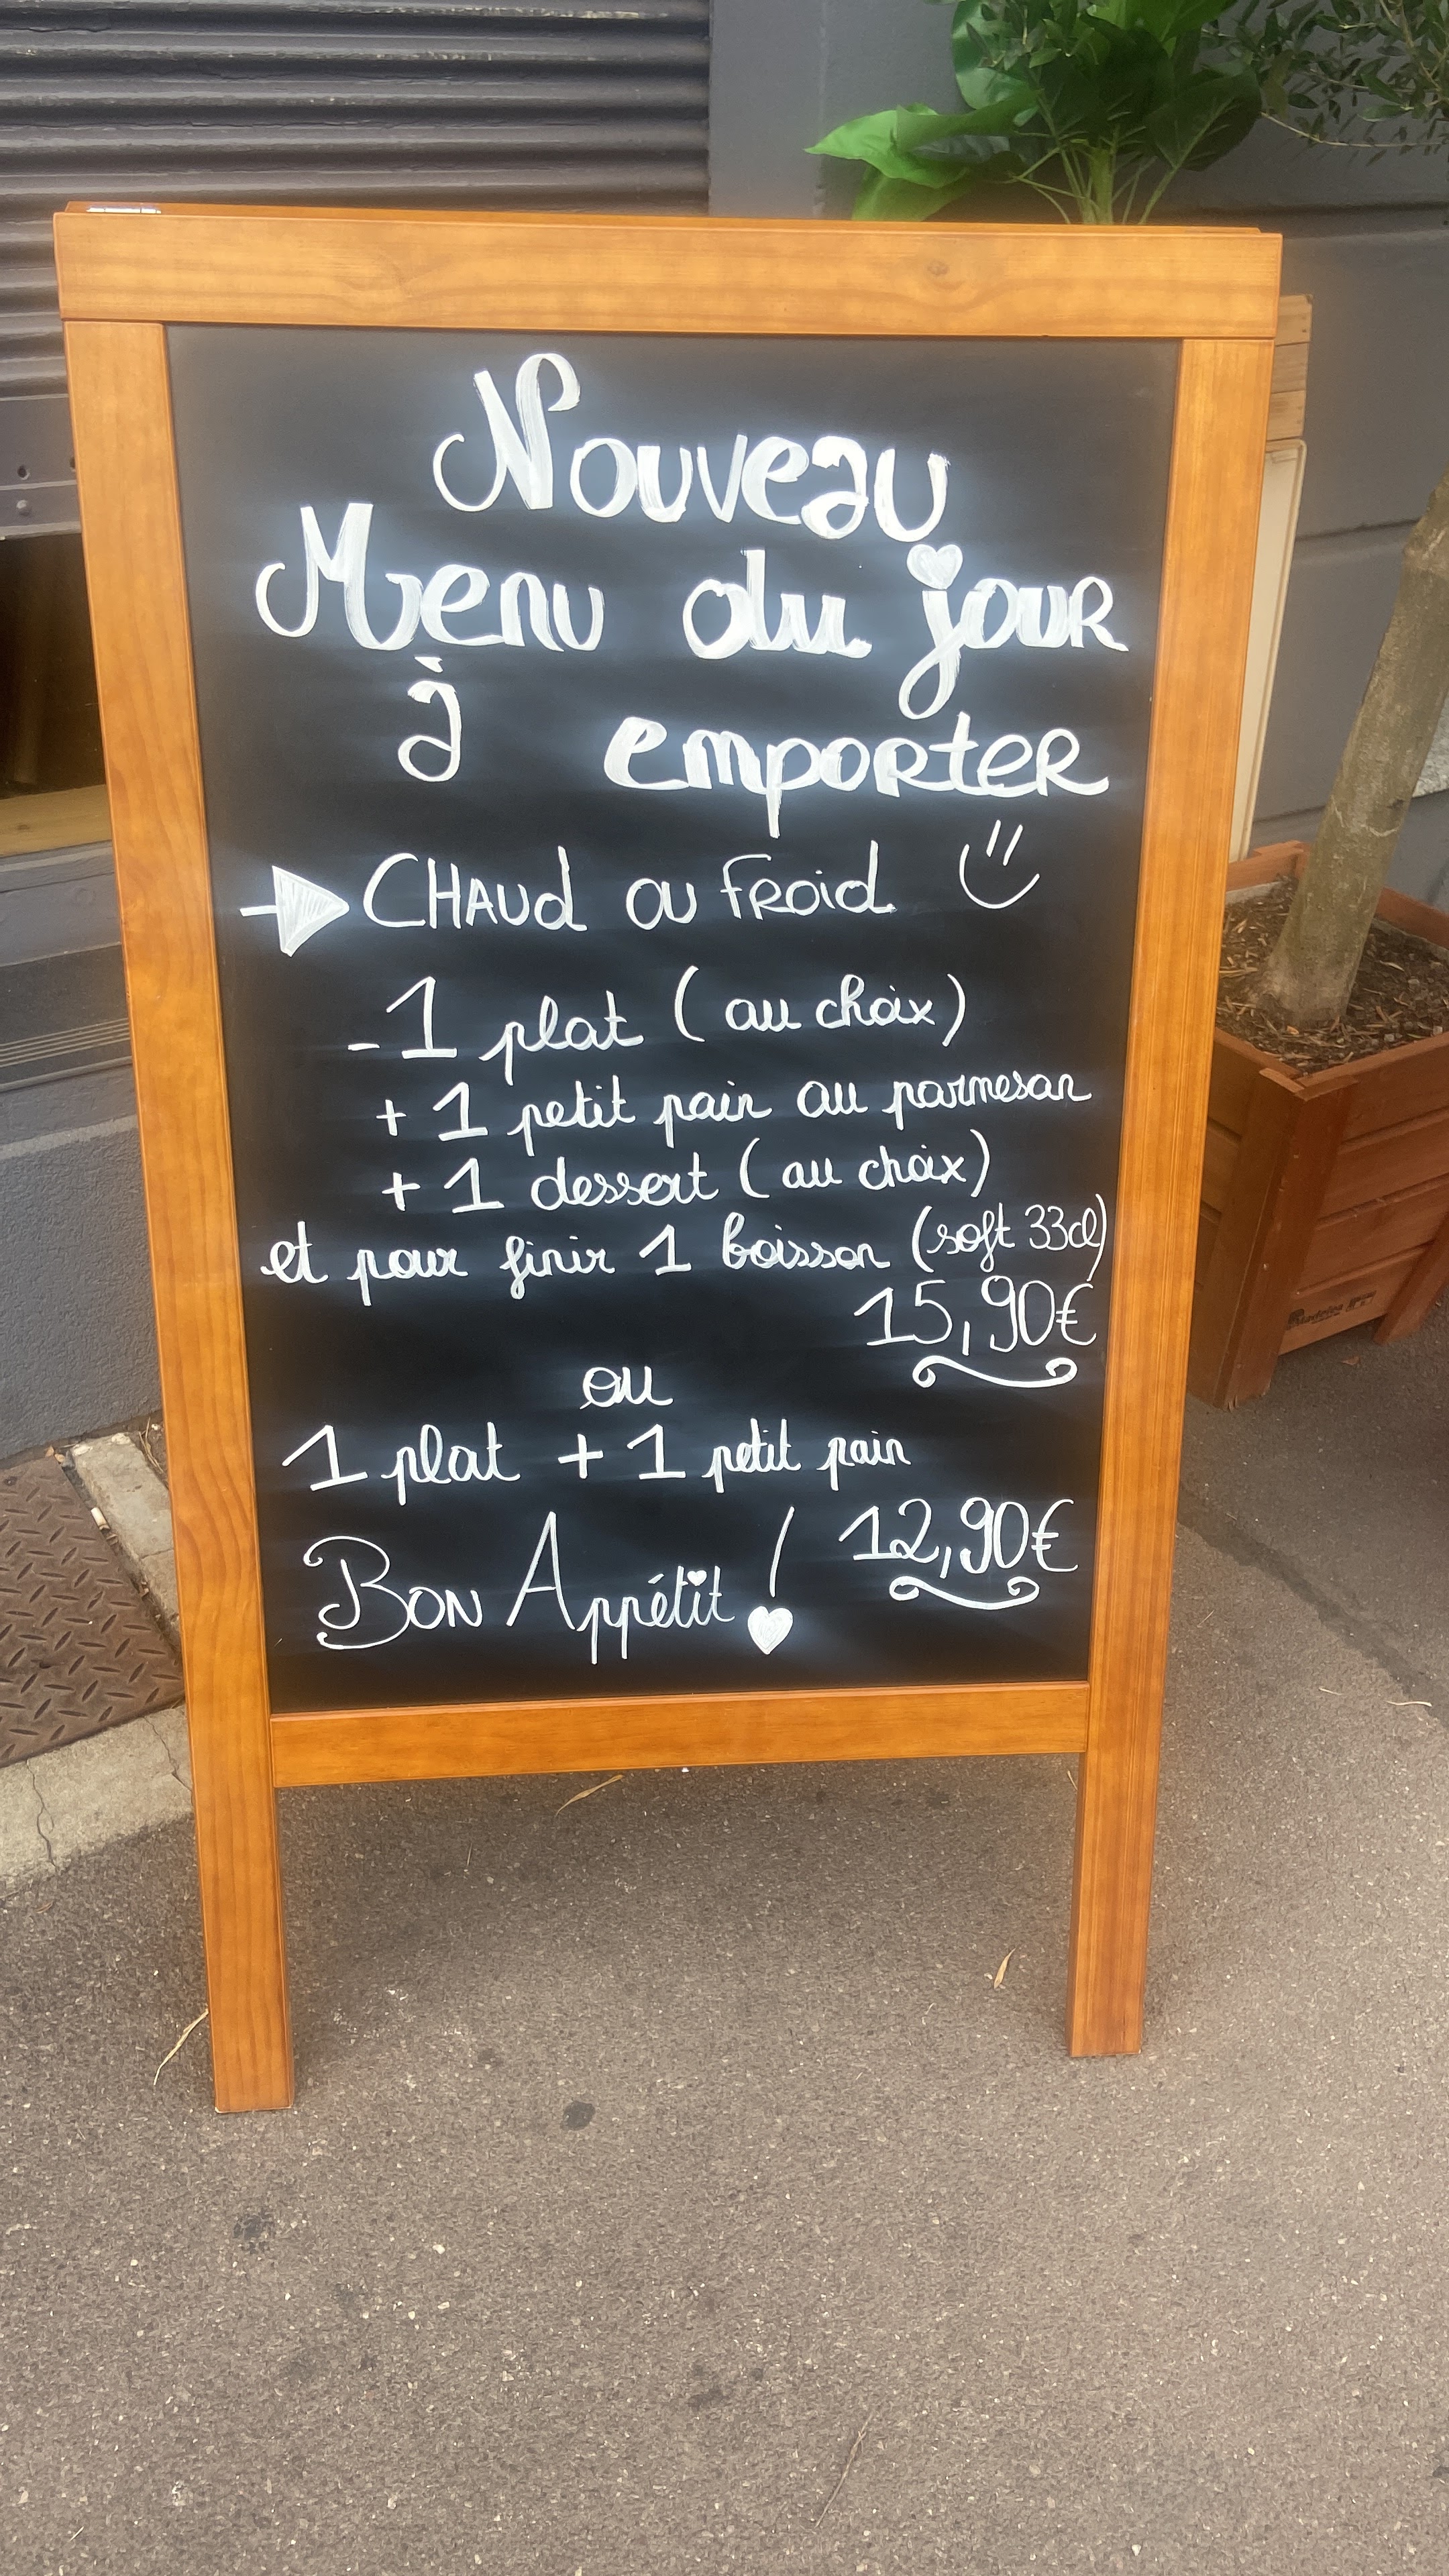 Nouveau
Menu du jour
à emporter
CHAUd ou froid
- 1 plat (au choix)
+ 1 petit pain au parmesan
+ 1 dessert (au choix)
et pour finir 1 boisson (soft 33cl)
15,90€
ou
1 plat + 1 petit pain
12,90€
Bon Appétit !